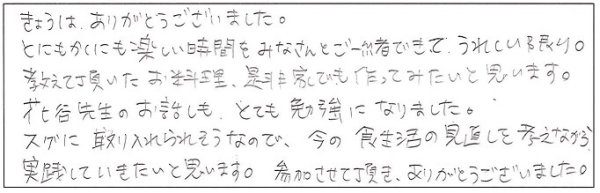 きょうは、ありがとうございました。
とにもかくにも楽しい時間をみなさんとご一緒できて、うれしい限り。
教えて頂いたお料理、是非家でも作ってみたいと思います。
花谷先生のお話しも、とても勉強になりました。
スグに取り入れられそうなので、今の食生活の見直しを考えながら
実践していきたいと思います。参加させて頂き、ありがとうございました。